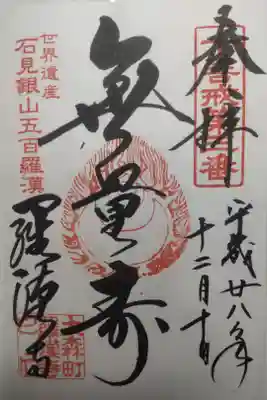 奉拝
平成廿八年
十二月十日
無量寿
世界遺産
石見銀山五百羅漢
羅漢寺
大森町